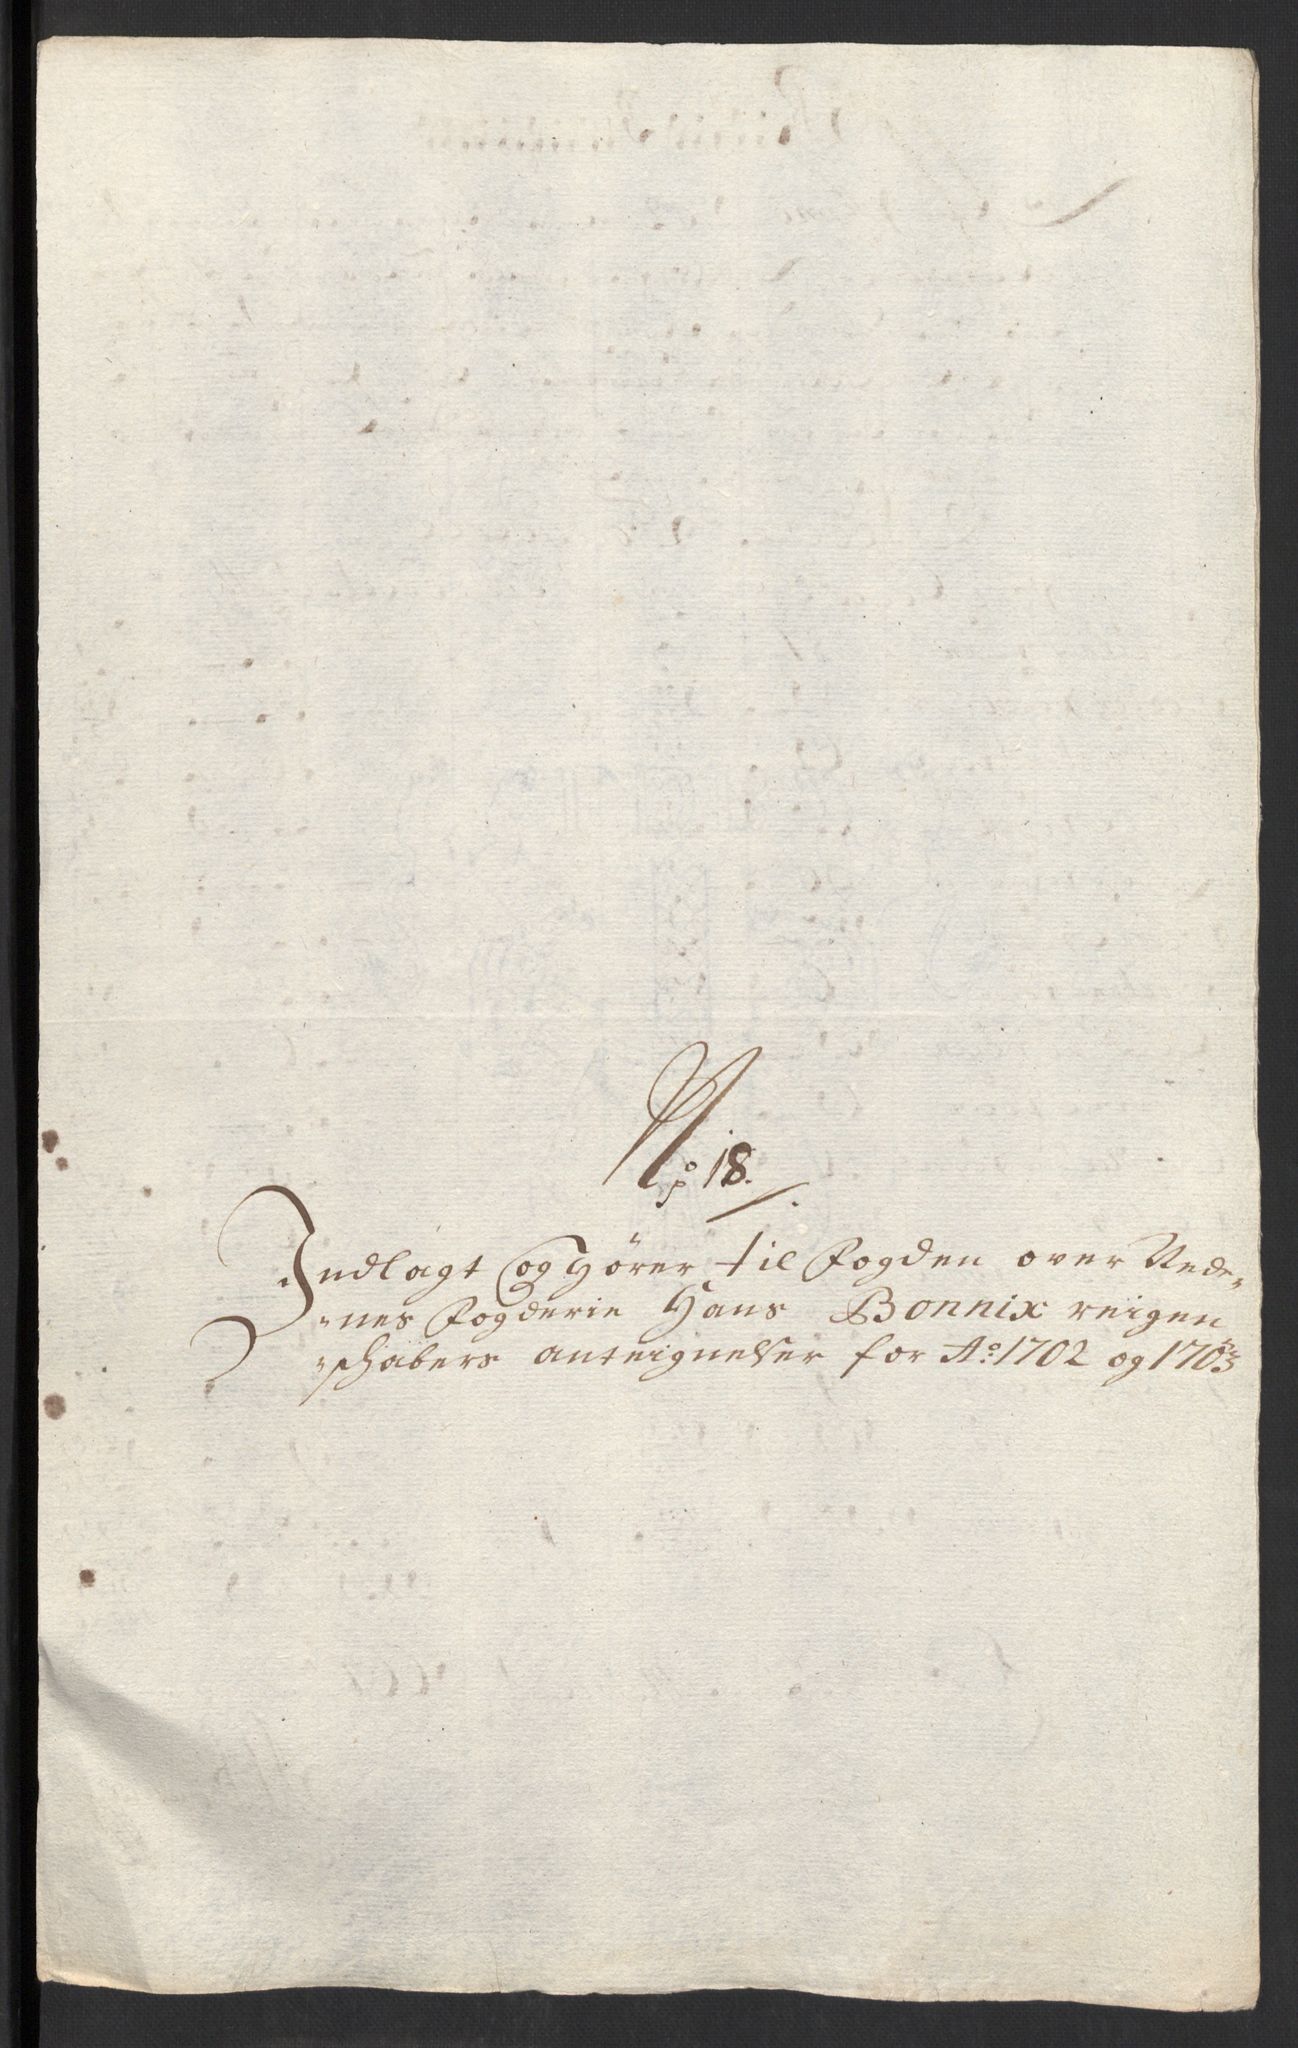 No 18.
Indlagt og Hører til Fogden over Nede-
nes Fogderie Hans Bonnix reigen
schabers anteignelser for Ao: 1702 og 1703